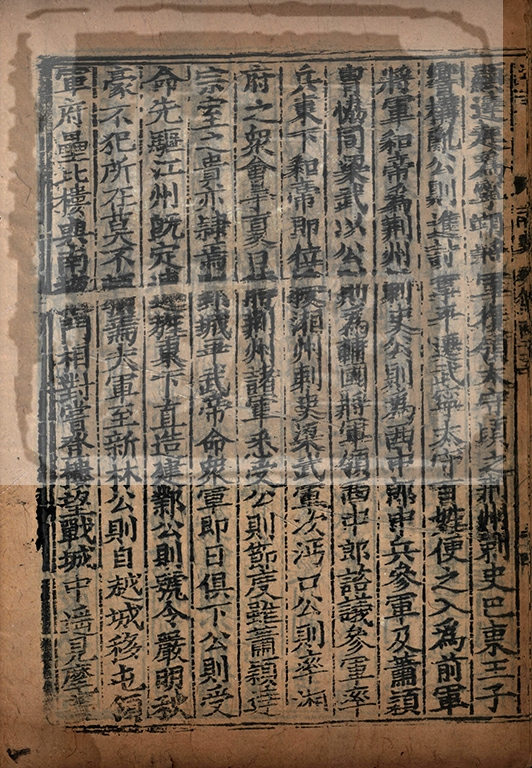 顯達延爲寧朔將軍復領太守頃之荊州刺史巴東王子
響構亂公則進討事平遷武寧太守百姓便之入爲前軍
將軍和帝爲荊州刺史公則爲西中郎中兵參軍及蕭穎
胄協同梁武以公則爲輔國將軍領西中郎諮議參軍率
兵東下和帝即位授湘州刺史梁武軍次沔口公則率湘
府之衆會于夏口時荊州諸軍悉受公則節度雖蕭穎達
宗室之貴亦隷焉郢城平武帝命衆軍即日俱下公則受
命先驅江州既定連旌東下直造建鄴公則號令嚴明秋
豪不犯所在莫不賴焉大軍至新林公則自越城移屯領
軍府壘北樓與南掖門相對嘗登樓望戰城中遥見麾蓋